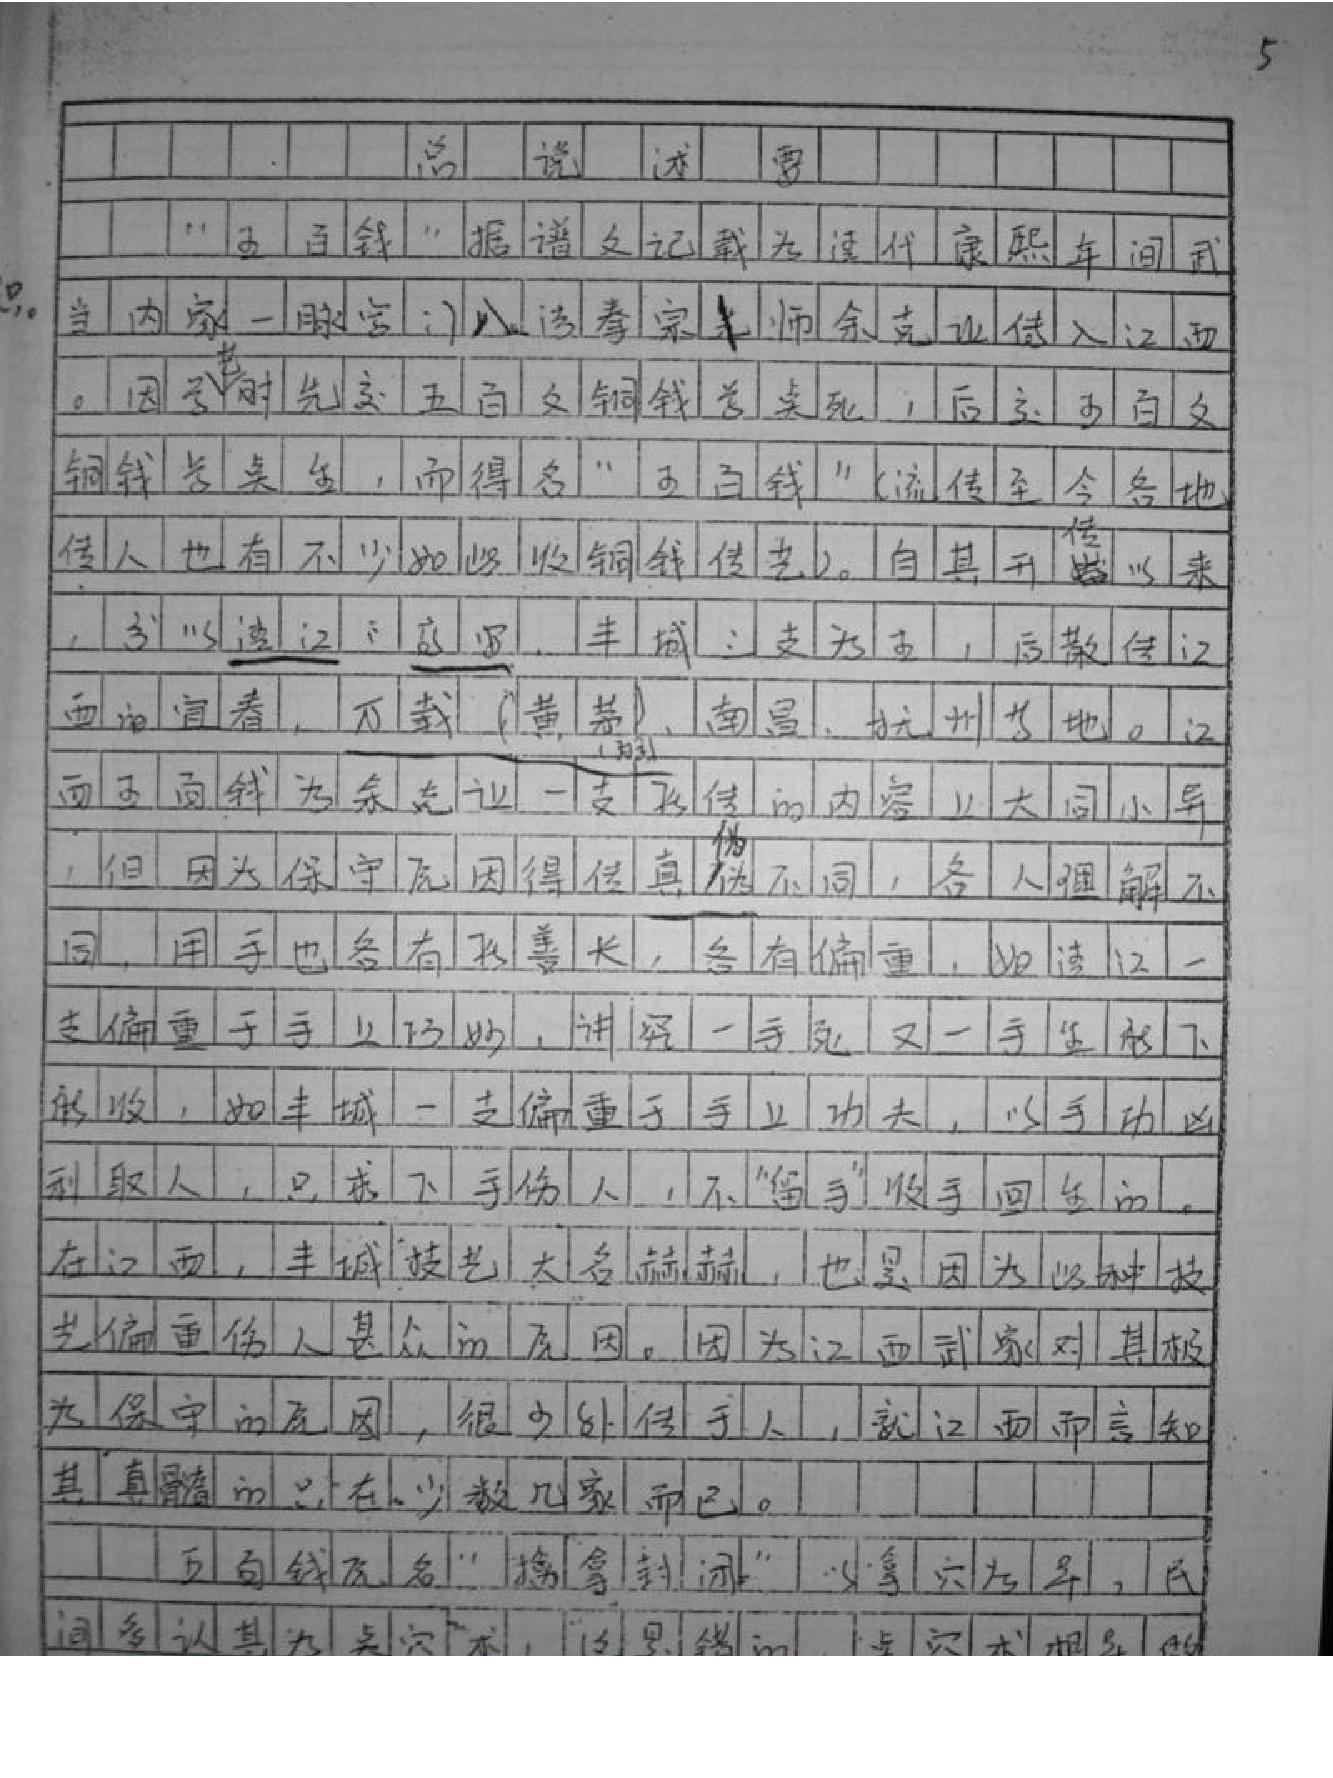 5
总说述要
“五百钱”据谱文记载为清代康熙年间武
当内家一脉字门八法拳宗师余克让传入江西
。因学艺时先交五百文铜钱学点死,后交五百文
铜钱学点生,而得名“五百钱”(流传至今各地
传人也有不少如此收铜钱传艺)。自其开传以来
,分以清江、高安、丰城三支为主,后散传江
西的宜春,万载(黄茅)、南昌、抚州等地。江
西五百钱为余克让一支所传的内容上大同小异
,但因为保守原因得传真伪不同,各人理解不
同,用手也各有所善长,各有偏重,如清江一
支偏重于手上巧妙,讲究一手死又一手生能下
能收,如丰城一支偏重于手上功夫,以手功凶
利取人,只求下手伤人,不“留手”收手回生的。
在江西,丰城技艺大名赫赫,也是因为此种技
艺偏重伤人甚众的原因。因为江西武家对其极
为保守的原因,很少外传于人,就江西而言知
其真髓的只在少数几家而已。
五百钱原名“擒拿封闭”以拿穴为早,民
间多认其为点穴术,这是错的,点穴术相